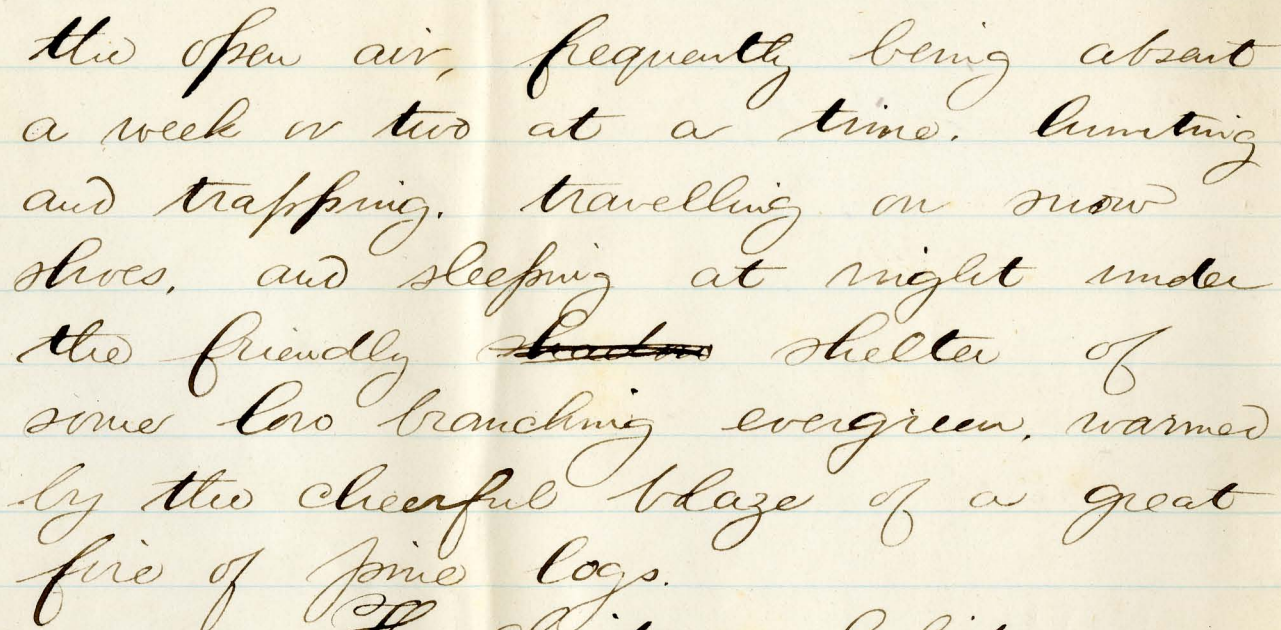 the open air, frequently being absent
a week or two at a time. hunting
and trapping. travelling on snow
shoes, and sleeping at night under
the friendly shadow shelter of
some low branching evergreen, warmed
by the cheerful blaze of a great
fire of pine logs.